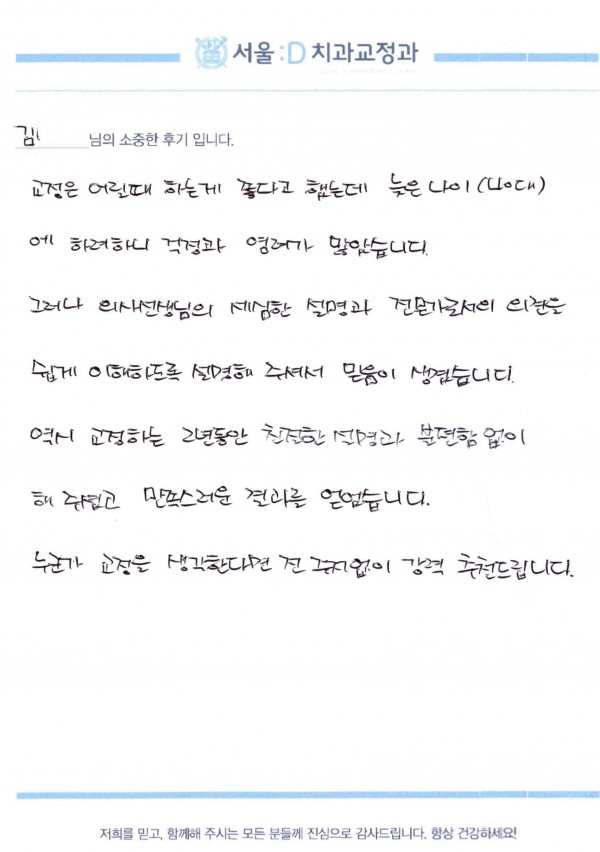 서울:D 치과교정과
김 님의 소중한 후기 입니다.
교정은 어릴때 하는게 좋다고 했는데 늦은 나이(40대)
에 하려하니 걱정과 염려가 많았습니다.
그러나 의사선생님의 세심한 설명과 전문가로서의 의견을
쉽게 이해하도록 설명해 주셔서 믿음이 생겼습니다.
역시 교정하는 2년동안 친절한 설명과 불편함 없이
해 주셨고 만족스러운 결과를 얻었습니다.
누군가 교정을 생각한다면 전 주저없이 강력 추천드립니다.
저희를 믿고, 함께해 주시는 모든 분들께 진심으로 감사드립니다. 항상 건강하세요!